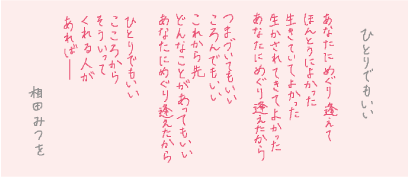 ひとりでもいい
あなたにめぐり逢えて
ほんとうによかった
生きていてよかった
生かされてきてよかった
あなたにめぐり逢えたから
つまづいてもいい
ころんでもいい
これから先
どんなことがあってもいい
あなたにめぐり逢えたから
ひとりでもいい
こころから
そういって
くれる人が
あれば―
相田みつを